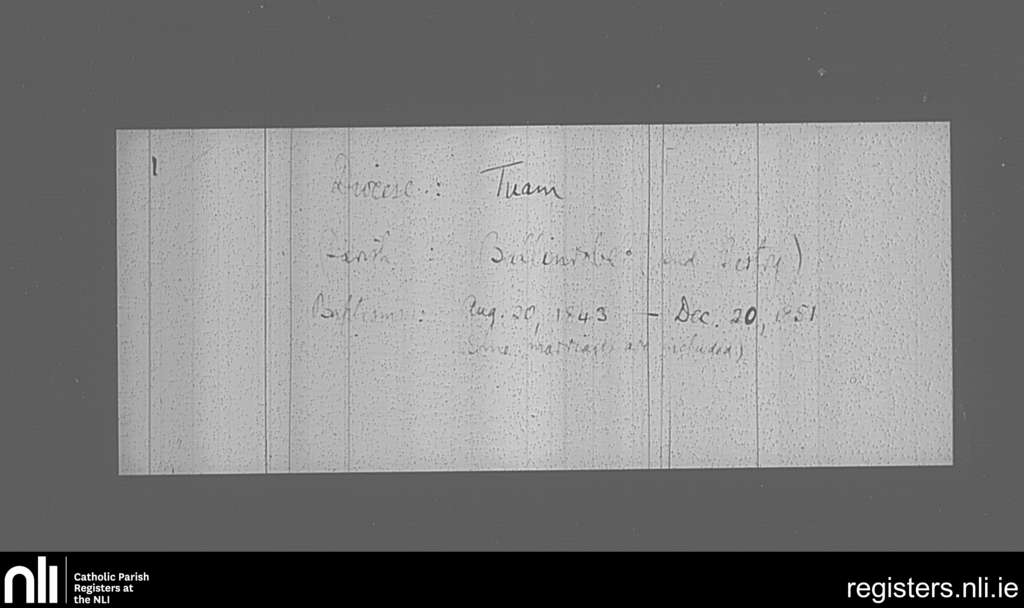 1
Diocese : Tuam
Parish : Ballinrobe and Partry)
Baptisms : Aug. 20, 1843 — Dec. 20, 1851
Some marriages are included)
nli
Catholic Parish
Registers at
the NLI
registers.nli.ie